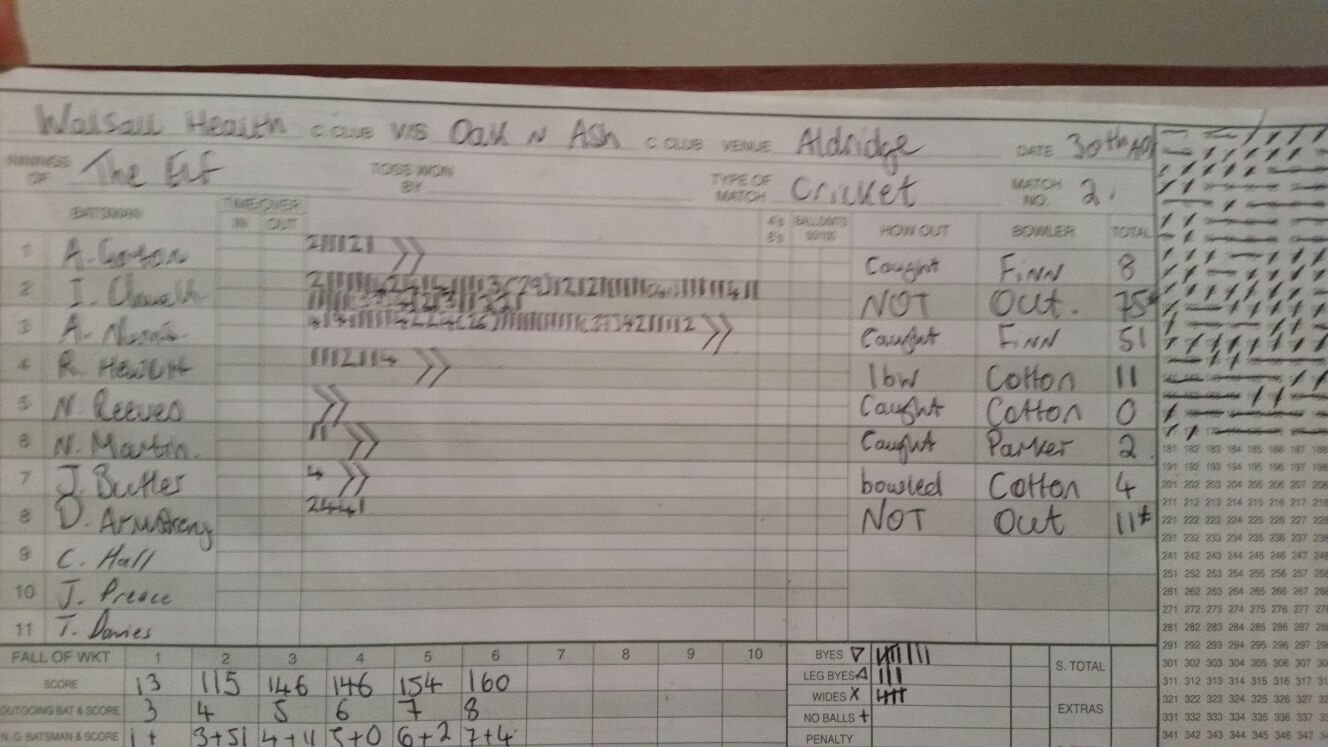 Walsall Health C. CLUB V/S Oak N Ash C. CLUB VENUE Aldridge DATE 30th
INNINGS OF The Elf TOSS WON BY TYPE OF MATCH Cricket MATCH NO. 2.
BATSMAN TIME/OVER IN OUT HOW OUT BOWLER TOTAL
1 A. Gorton 211121 >> Caught Finn 8
2 I. NOT Out. 75*
3 A. >> Caught Finn 51
4 R. 1112114 >> lbw Cotton 11
5 N. Reeves >> Caught Cotton 0
6 N. Martin. 11 >> Caught Parker 2
7 J. Butler 4 >> bowled Cotton 4
8 D. Armstrong 2441 NOT Out 11*
9 C. Hall
10 J. Preece
11 T. Davies
FALL OF WKT 1 2 3 4 5 6 7 8 9 10 BYES
SCORE 13 115 146 146 154 160 LEG BYES S. TOTAL
OUTGOING BAT & SCORE 3 4 5 6 7 8 WIDES X EXTRAS
N.O. BATSMAN & SCORE 1+ 3+51 4+11 5+0 6+2 7+4 NO BALLS +
PENALTY
181 182 183 184 185 186 187 188
191 192 193 194 195 196 197 198
201 202 203 204 205 206 207 208
211 212 213 214 215 216 217 218
221 222 223 224 225 226 227 228
231 232 233 234 235 236 237 238
241 242 243 244 245 246 247 248
251 252 253 254 255 256 257 258
261 262 263 264 265 266 267 268
271 272 273 274 275 276 277 278
281 282 283 284 285 286 287 288
291 292 293 294 295 296 297 298
301 302 303 304 305 306 307 308
311 312 313 314 315 316 317 318
321 322 323 324 325 326 327 328
331 332 333 334 335 336 337 338
341 342 343 344 345 346 347